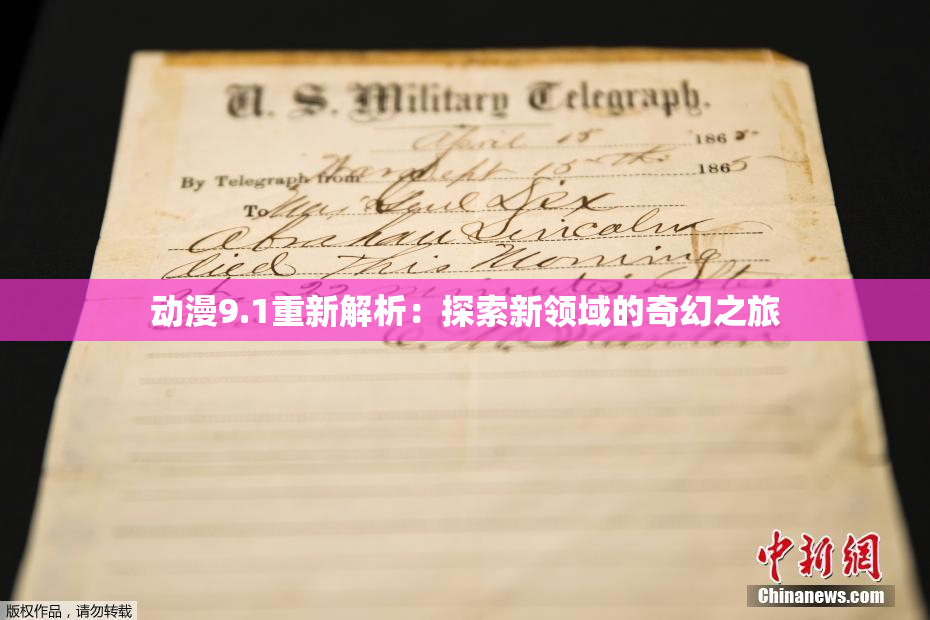 U. S. Military Telegraph.
April 15 1865
By Telegraph from War Dept 15th 1865
To Maj Genl Dix
Abraham Lincoln
died This Morning
at 22 minutes after
动漫9.1重新解析：探索新领域的奇幻之旅
E. M. Stanton
中新网
Chinanews.com
版权作品，请勿转载